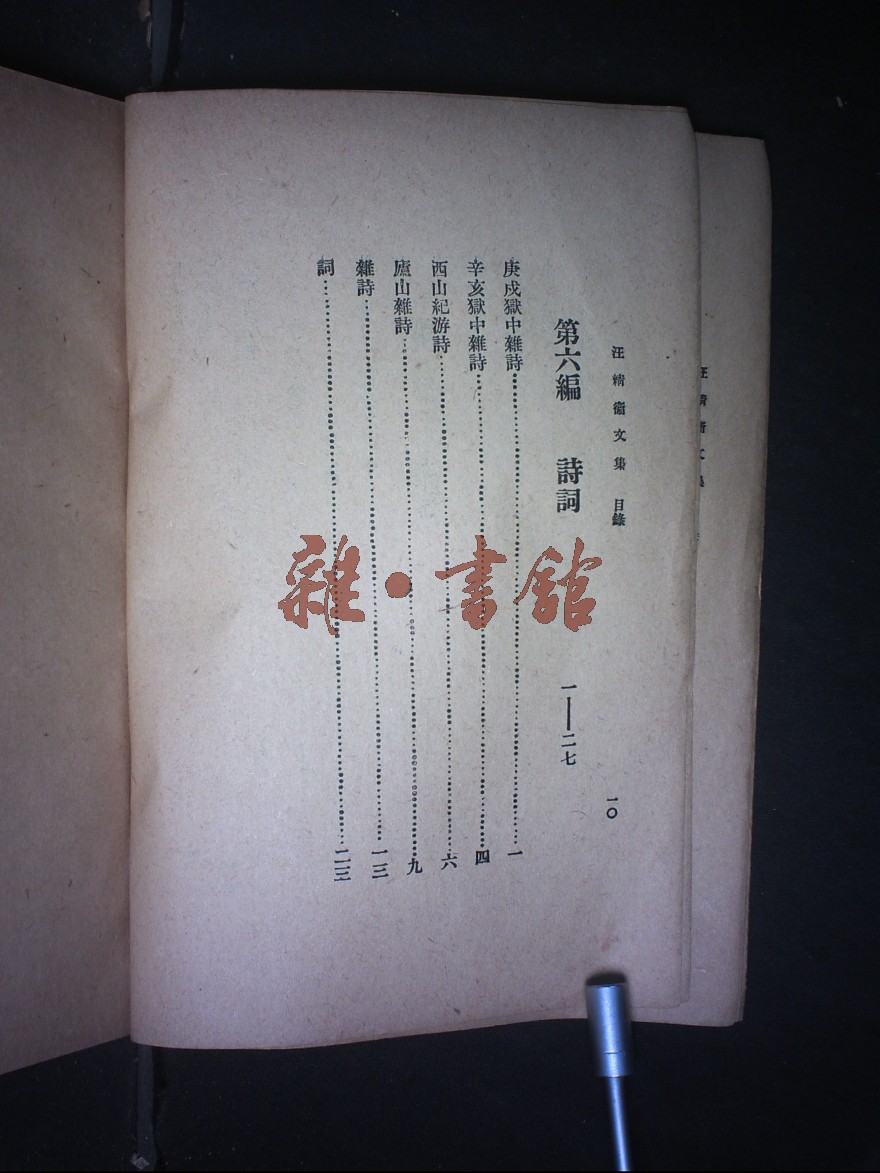 汪精衞文集 目錄 一〇
第六編 詩詞 一——二七
庚戌獄中雜詩 一
辛亥獄中雜詩 四
西山紀游詩 六
廬山雜詩 九
雜詩 一三
詞 二三
雜·書館